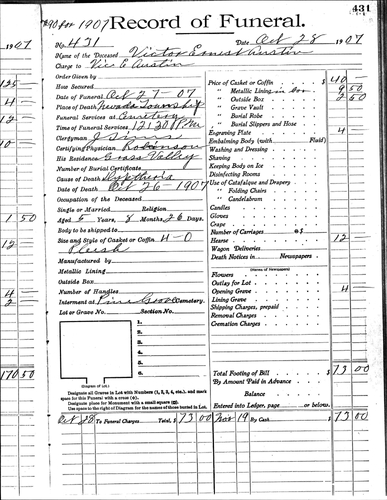 431
1907
Record of Funeral.
No. 431 Date Oct 28 1907
Name of the Deceased Victor Ernest Austin
Charge to Vic E Austin
Order Given by
How Secured
Date of Funeral Oct 27-07
Place of Death Nevada Township
Funeral Services at Cemetery
Time of Funeral Services 12:30 P.M.
Clergyman J Sims
Certifying Physician Robinson
His Residence Grass Valley
Number of Burial Certificate
Cause of Death Diptheria
Date of Death Oct 26-1907
Occupation of the Deceased
Single or Married Religion
Aged 6 Years, 8 Months, 26 Days.
Body to be shipped to
Size and Style of Casket or Coffin 4-0
Plush
Manufactured by
Metallic Lining
Outside Box
Number of Handles
Interment at Pine Grove Cemetery.
Lot or Grave No. Section No.
1.
2.
3.
4.
5.
6.
(Diagram of Lot.)
Designate all Graves in Lot with Numbers (1, 2, 3, 4, etc.), and mark
space for this Funeral with a cross (+).
Designate place for Monument with a small square (□).
Use space to the right of Diagram for the names of those buried in Lot.
Oct 28 To Funeral Charges Total, $ 73 00
Price of Casket or Coffin $ 40
" Metallic Lining in box " 9 50
" Outside Box " 2 50
" Grave Vault
" Burial Robe
" Burial Slippers and Hose
Engraving Plate 4
Embalming Body (with Fluid)
Washing and Dressing
Shaving
Keeping Body on Ice
Disinfecting Rooms
Use of Catafalque and Drapery
" Folding Chairs
" Candelabrum
Candles
Gloves
Crape
Number of Carriages @$
Hearse 12
Wagon Deliveries
Death Notices in Newspapers
(Names of Newspapers)
Flowers
Outlay for Lot
Opening Grave 4
Lining Grave
Shipping Charges, prepaid
Removal Charges
Cremation Charges
Total Footing of Bill $ 73 00
By Amount Paid in Advance
Balance
Entered into Ledger, page or below.
Nov 19 By Cash $ 73 00
1907
125
4
12
10
1 50
12
4
2
170 50